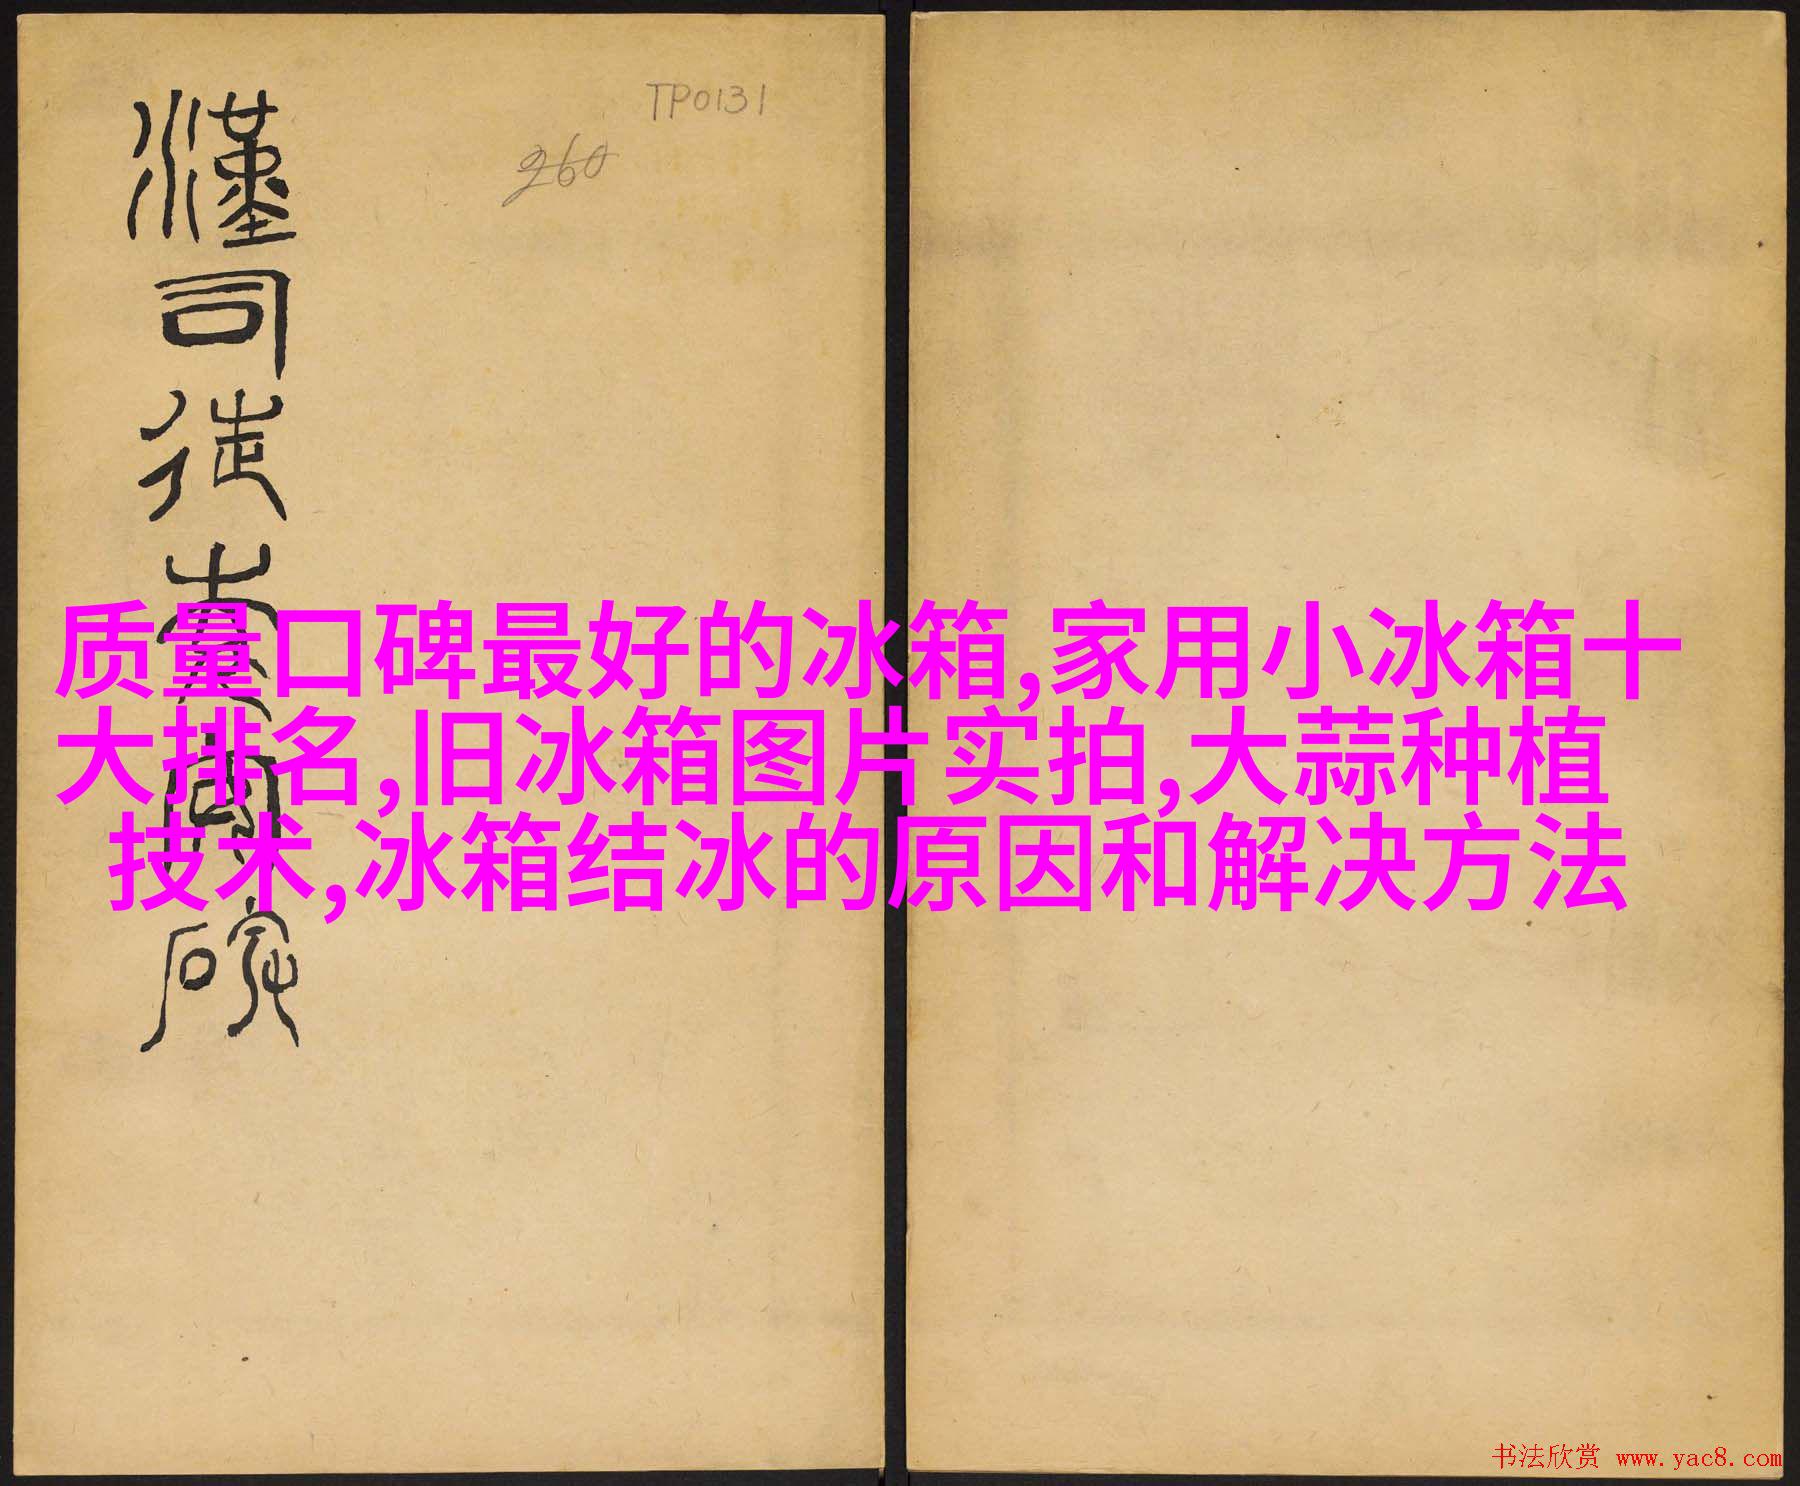 TP0131
260
漢司徒袁
质量口碑最好的冰箱,家用小冰箱十
大排名,旧冰箱图片实拍,大蒜种植
技术,冰箱结冰的原因和解决方法
书法欣赏 www.yac8.com